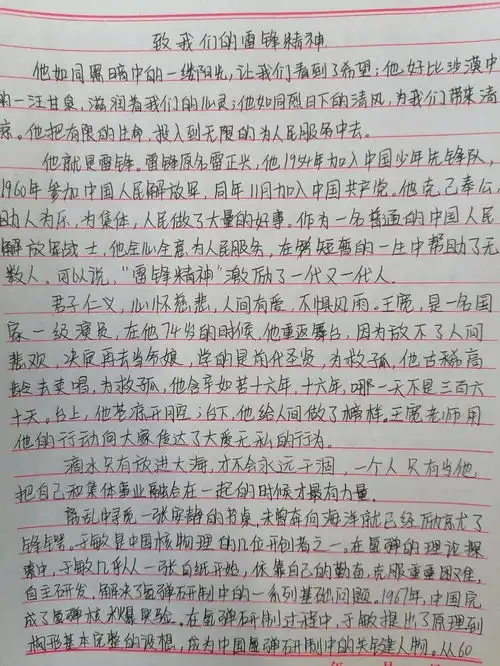 致我们的雷锋精神
他如同黑暗中的一缕阳光,让我们看到了希望;他好比沙漠中
的一汪甘泉,滋润着我们的心灵;他如同烈日下的清风,为我们带来清
凉。他把有限的生命,投入到无限的为人民服务中去。
他就是雷锋。雷锋原名雷正兴,他1954年加入中国少年先锋队,
1960年参加中国人民解放军,同年11月加入中国共产党。他克己奉公,
助人为乐,为集体,人民做了大量的好事。作为一名普通的中国人民
解放军战士,他全心全意为人民服务,在第短暂的一生中帮助了无
数人。可以说,“雷锋精神”激励了一代又一代人。
君子仁义,心怀慈悲,人间有爱,不惧风雨。王宽,是一名国
家一级演员,在他74岁的时候,他重返舞台,因为放不了人间
悲欢,决定再去当爷娘,学的是前代圣贤,为救孤,他古稀高
龄去卖唱,为救孤,他含辛如苦十六年,十六年,哪一天不是三百六
十天。台上,他苍凉开腔;台下,他给人间做了榜样。王宽老师用
他的行动向大家传达了大爱无私的行为。
滴水只有放进大海,才不会永远干涸,一个人只有当他
把自己和集体事业融合在一起的时候才最有力量。
离乱中寻觅一张安静的书桌,未曾向海洋就已经砺就了
锋锷。于敏是中国核物理的几位开创者之一。在氢弹的理论探
索中,于敏几乎从一张白纸开始,依靠自己的勤奋,克服重重困难,
自主研发,解决了氢弹研制中的一系列基础问题。1967年,中国完
成了氢弹核爆实验。在氢弹研制过程中,于敏提出了原理到
构形基本完整的设想,成为中国氢弹研制中的关键人物。从60